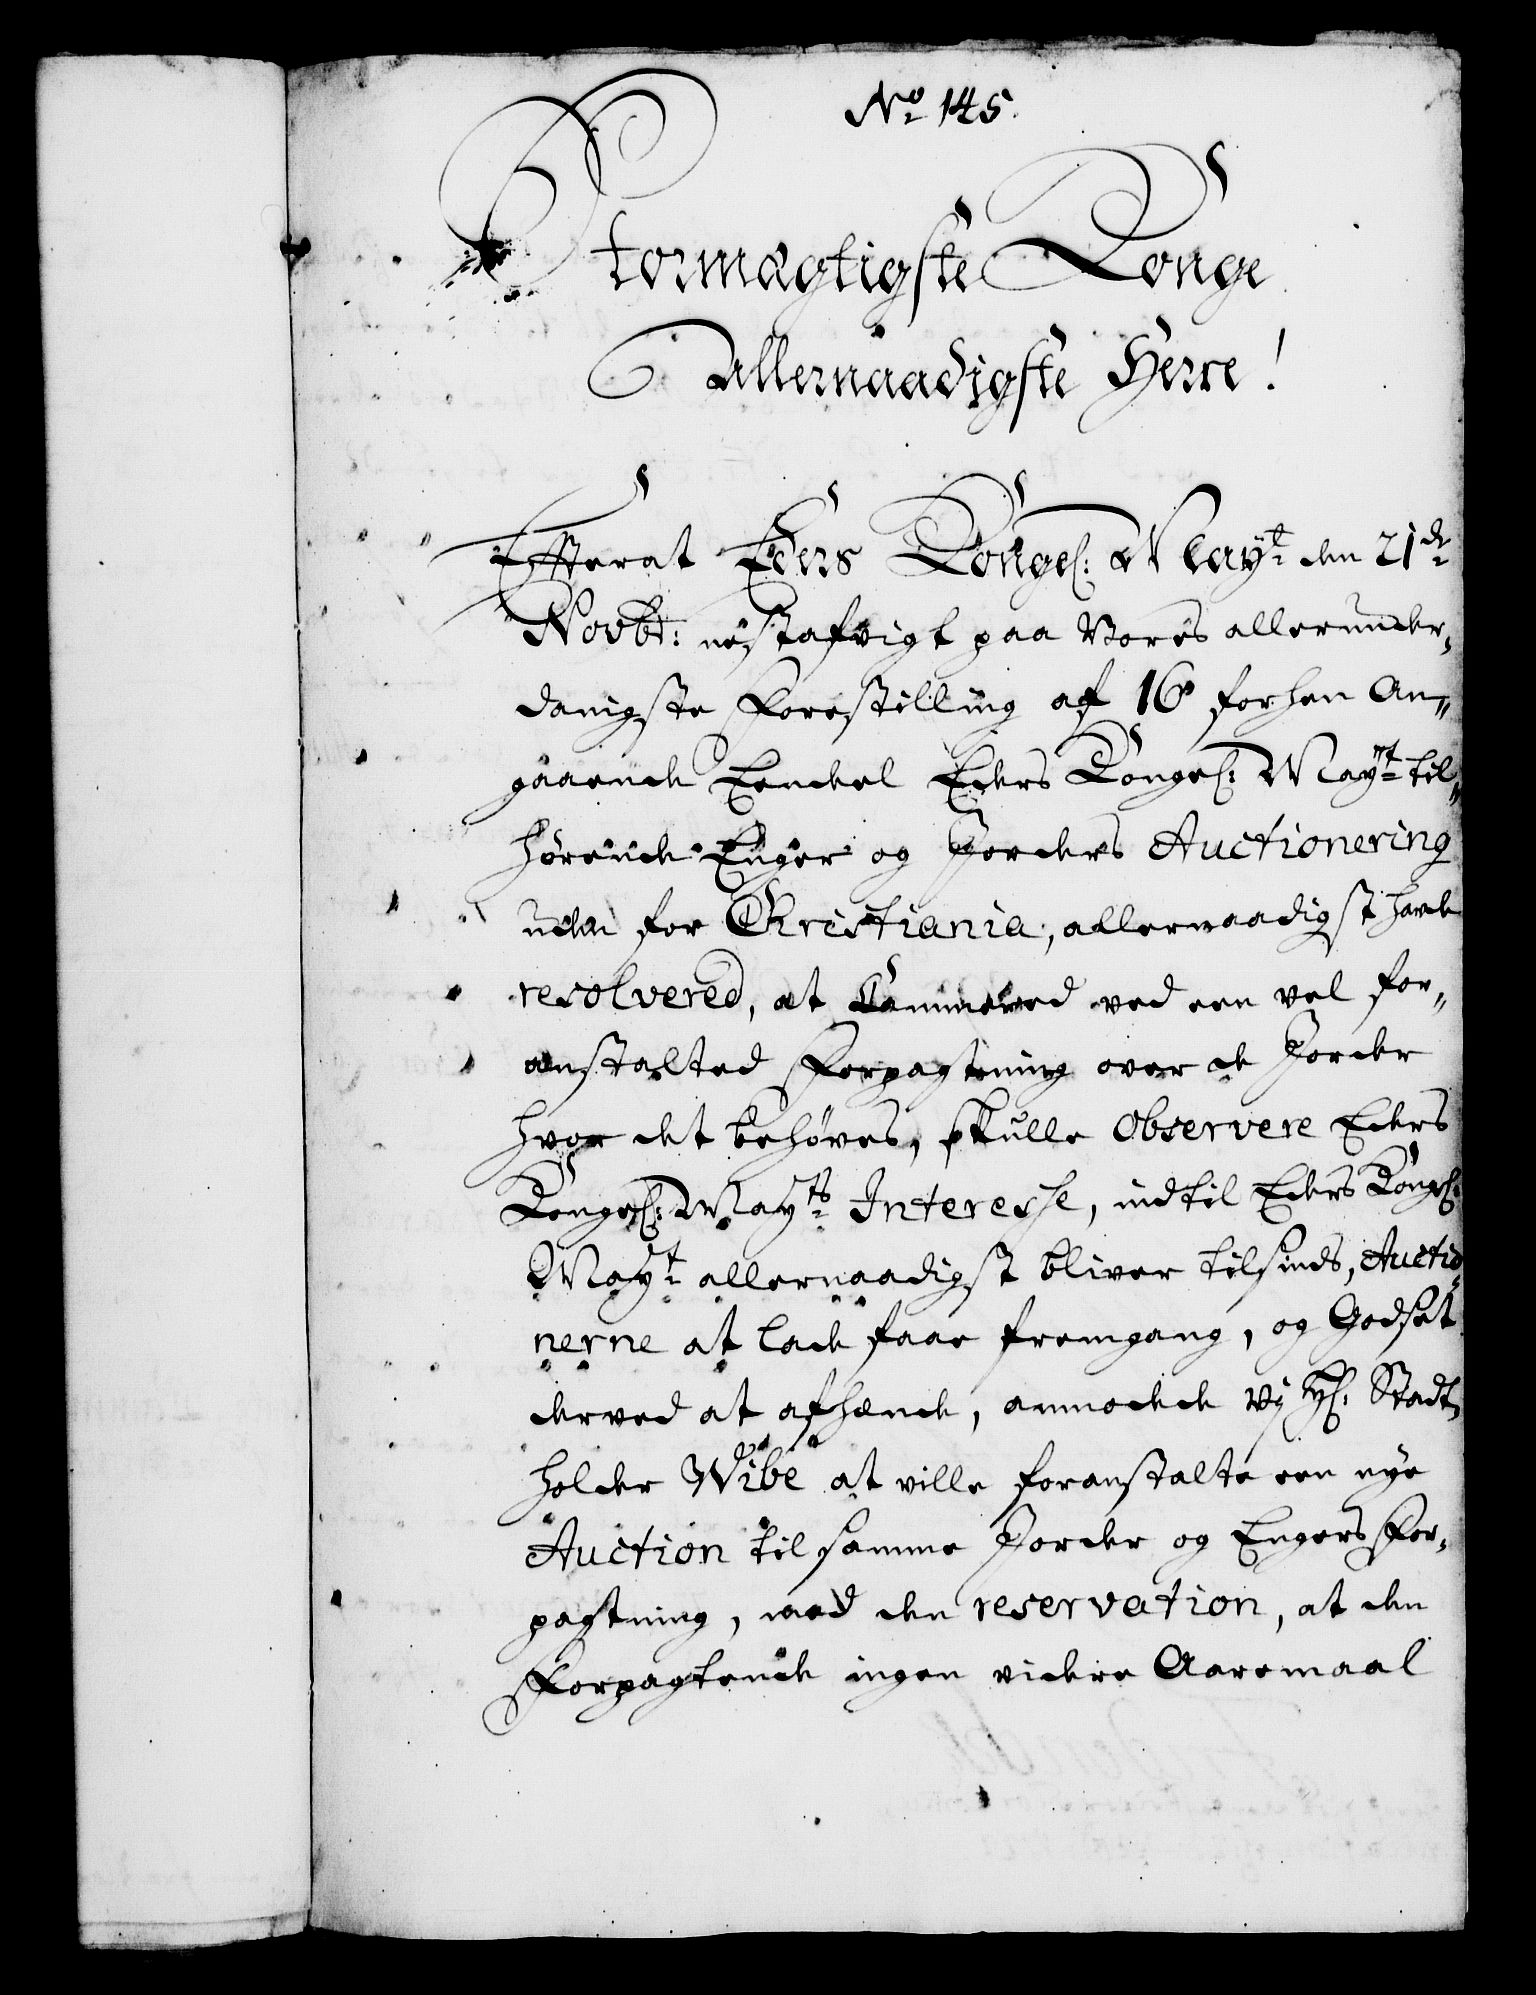 No. 145.
Stormægtigste Konge
Allernaadigste Herre!
Effterat Eders Kongel: Mayt. den 21de
Novbr: nestafvigt paa Vores allerunder,
danigste Forestilling af 16 forhen An„
gaaende Eendel Eders Kongel: Mayt. til„
hørende Enger og Jorders Auctionering
uden for Christiania, allernaadigst hafde
resolvered, at Cammered ved een vel for„
anstalted Forpagtning over de Jorder
hvor det behøves, skulle observere Eders
Kongel: Mayts. Interesse, indtil Eders Kongel:
Mayt. allernaadigst bliver tilsinds, Auctio„
nerne at lade faae fremgang, og Godset
derved at afhænde, anmodede Vj H: Stadt„
holder Wibe at ville foranstalte een nye
Auction til samme Jorder og Engers For,
pagtning, med den reservation, at den
Forpagtende ingen videre Aaremaal